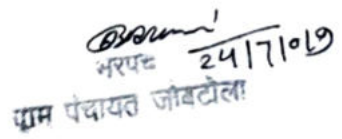 सरपंच 24/7/019
ग्राम पंचायत जोबटोला